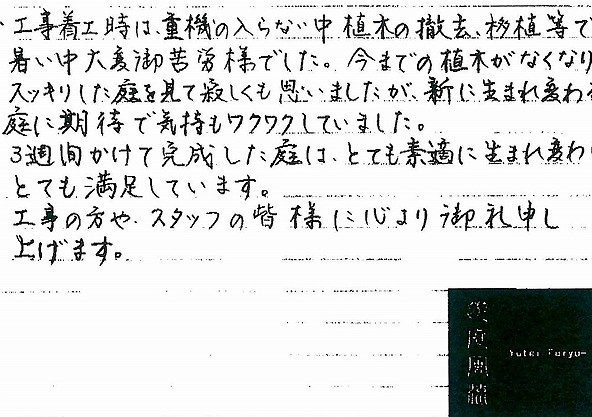 工事着工時は、重機の入らない中植木の撤去、移植等で
暑い中大変御苦労様でした。今までの植木がなくなり
スッキリした庭を見て寂しくも思いましたが、新に生まれ変わる
庭に期待で気持もワクワクしていました。
3週間かけて完成した庭は、とても素適に生まれ変わり
とても満足しています。
工事の方や、スタッフの皆様に心より御礼申し
上げます。